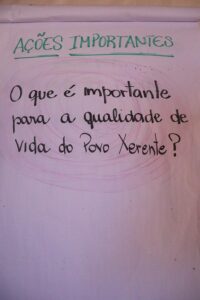 AÇÕES IMPORTANTES
O que é importante
para a qualidade de
vida do Povo Xerente?